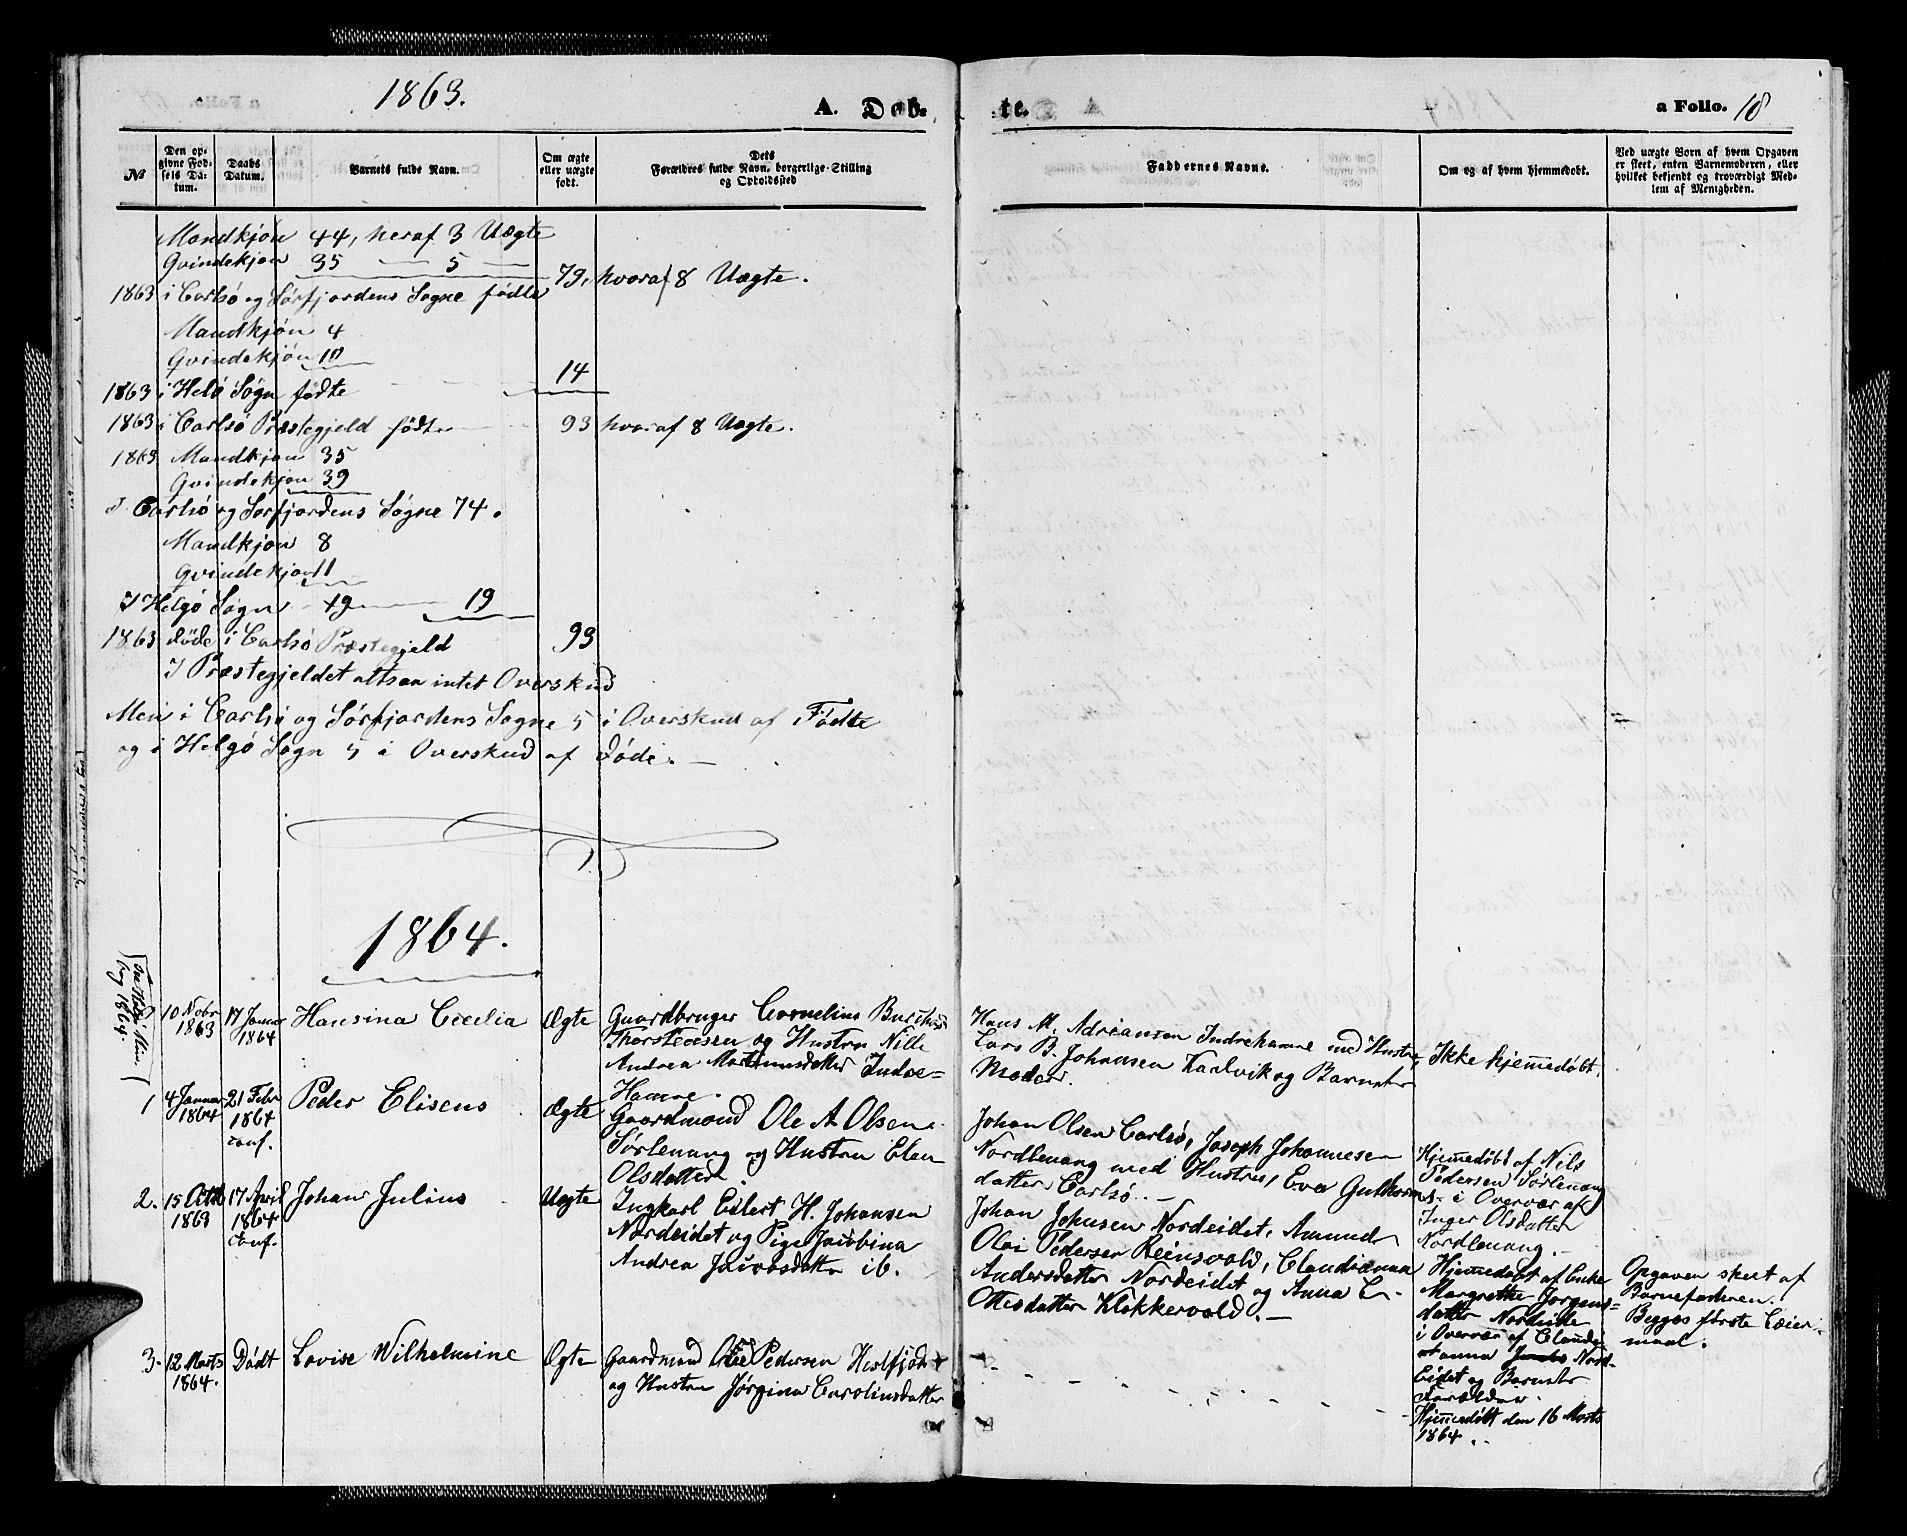 1863.
A. Døb-
te.
a Folio. 18
№
Den op-
givne Fød-
sels Da-
tum.
Daabs
Datum.
Barnets fulde Navn.
Om ægte
eller uægte
født.
Dets
Forældres fulde Navn, borgerlige Stilling
og Opholdssted
Faddernes Navne.
Om og af hvem hjemmedøbt.
Ved uægte Børn af hvem Opgaven
er skeet, enten Barnemoderen, eller
hvilket bekjendt og troværdigt Med-
lem af Menigheden.
Mandkjøn 44, heraf 3 Uægte
Qvindekjøn 35 — 5 —
1863 i Carlsø og Sørfjordens Sogne fødte 79, hvoraf 8 Uægte.
Mandkjøn 4
Qvindekjøn 10
1863 i Helgø Sogn fødte 14
1863 i Carlsø Præstegjeld fødte 93 hvoraf 8 Uægte.
1863 Mandkjøn 35
Qvindekjøn 39
I Carlsø og Sørfjordens Sogne 74.
Mandkjøn 8
Qvindekjøn 11
I Helgø Sogn 19 — 19
1863 døde i Carlsø Præstegjeld 93
I Præstegjeldet altsaa intet Overskud
Men i Carlsø og Sørfjordens Sogne 5 i Overskud af Fødte
og i Helgø Sogn 5 i Overskud af Døde. —
1864.
10 Nobr
1863
17 Januar
1864
Hansina Cecilia
Ægte
Gaardbruger Cornelius
Thorstensen og Hustru Nille
Andrea Martinusdatter Indre-
Hamne.
Hans M. Adriansen Indrehamne med Hustru,
Lars B. Johansen Karlvik og Barnets
Moder.
Ikke hjemmedøbt.
1
4 Januar
1864
21 Febr
1864
conf.
Peder Eliseus
Ægte
Gaardmand Ole A Olsen
Sørlenang og Hustru Elen
Olsdatter
Johan Olsen Carlsø, Joseph Johannesen
Nordlenang med Hustru, Eva
datter Carlsø. —
Hjemmedøbt af Nils
Pedersen Sørlenang
i Overvær af
Inger Olsdatter
Nordlenang. —
2.
15 Octbr
1863
17 April
1864
conf.
Johan Julius
Uægte
Ungkarl Eilert H. Johansen
Nordeidet og Pige Jacobina
Andrea Jacobsdatter ib.
Johan Johnsen Nordeidet, Amund
Olai Pedersen Reinsvold, Claudianna
Andersdatter Nordeidet og Anna E-
Ottesdatter Klokkervold. —
Hjemmedøbt af Enke
Margrethe Jørgens-
datter Nordeide
i Overvær af Claudi-
anna Nord-
Eidet og Barnets
Forældre.
Opgaven skeet af
Barnefaderen.
Begges første Leier-
maal.
3.
12 Marts
1864.
Dødt
Lovise Wilhelmine
Ægte
Gaardmand Ole Pedersen
og Hustru Jørgine Carolinsdatter
Hjemmedøbt den 16 Marts
1864.